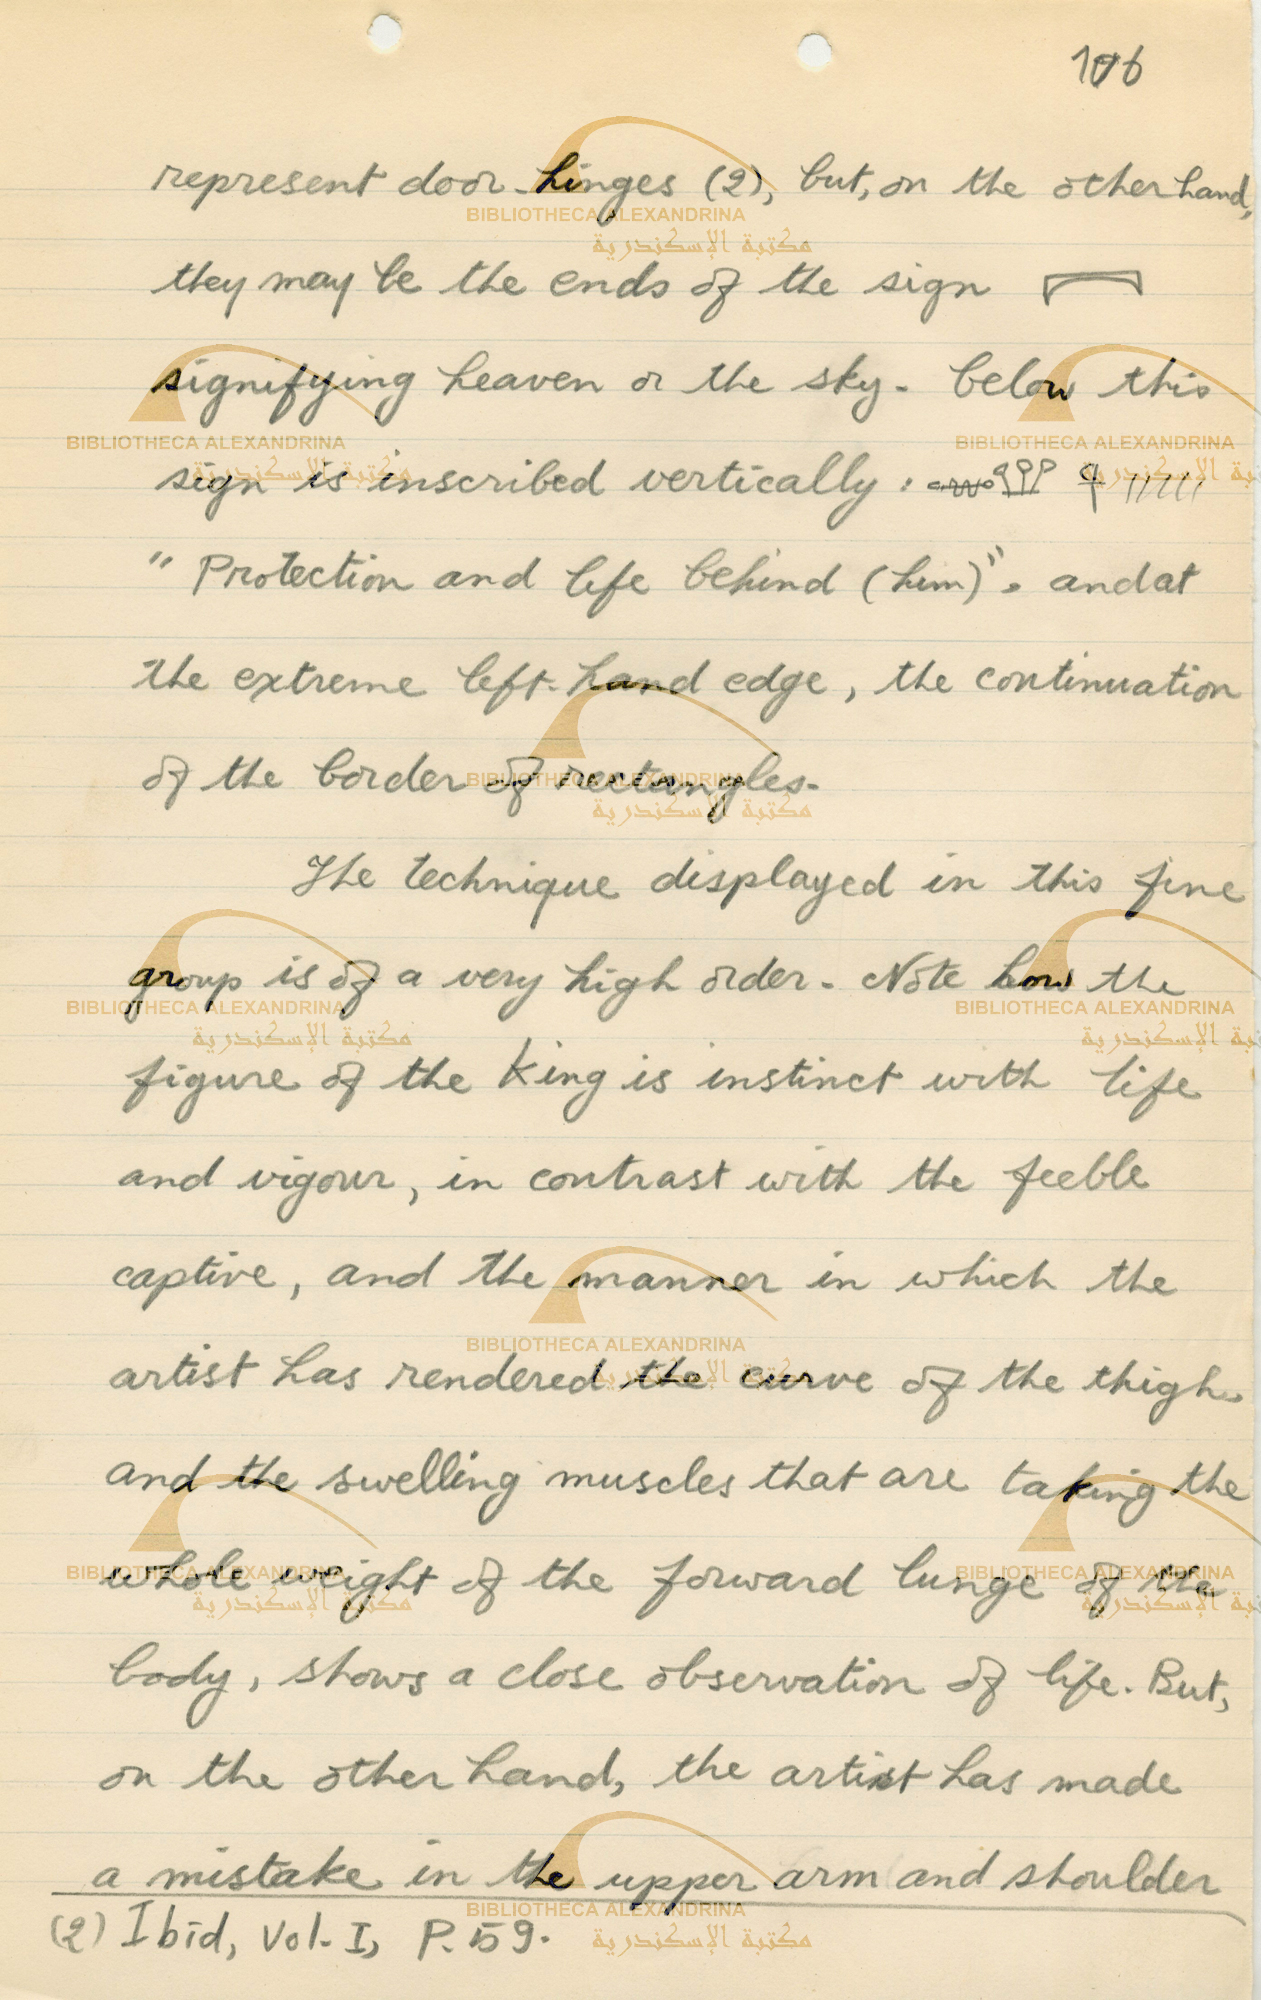 106
represent door-hinges (2), but, on the other hand,
they may be the ends of the sign
signifying heaven or the sky. below this
sign is inscribed vertically :
" Protection and life behind (him)". and at
the extreme left-hand edge, the continuation
of the border of rectangles.
The technique displayed in this fine
group is of a very high order. Note how the
figure of the King is instinct with life
and vigour, in contrast with the feeble
captive, and the manner in which the
artist has rendered the curve of the thigh
and the swelling muscles that are taking the
whole weight of the forward lunge of the
body, shows a close observation of life. But,
on the other hand, the artist has made
a mistake in the upper arm and shoulder
(2) Ibid, Vol. I, P. 59.
BIBLIOTHECA ALEXANDRINA
مكتبة الإسكندرية